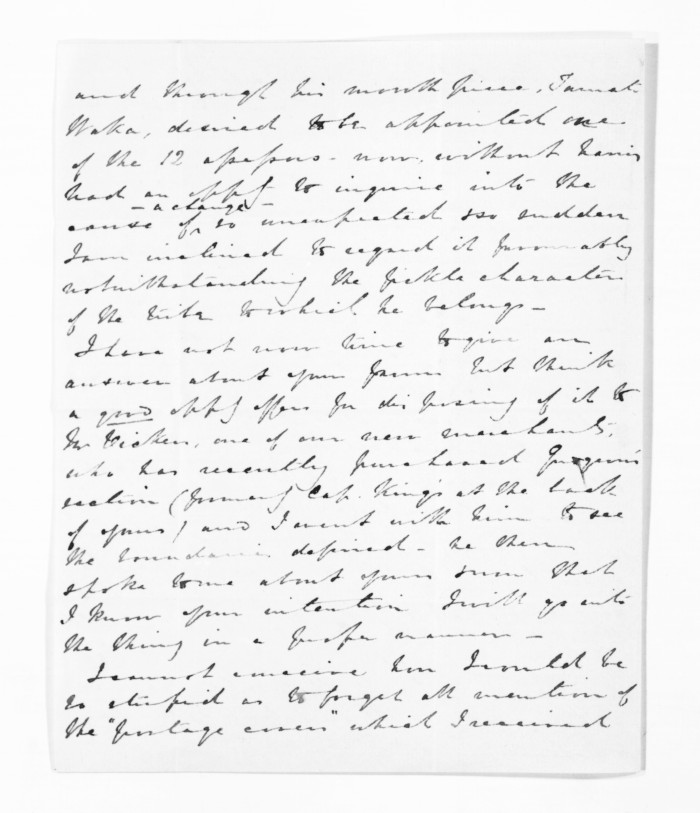 and through his mouth piece, Tamati
Waka, desired to be appointed one
of the 12 assessors - now, without having
had an oppy to inquire into the
cause of, so unexpected & so sudden
- a change -
I am inclined to regard it favourably
notwithstanding the fickle character
of the tribe to which he belongs -
I have not now time to give an
answer about your farm but think
a good oppy offers for disposing of it to
Mr , one of our new merchants,
who has recently purchased
section (formerly Cap. King's at the back
of yours) and I went with him to see
the boundaries defined - he then
spoke to me about yours now that
I know your intention I will go into
the thing in a proper manner -
I cannot conceive how I could be
so stupid as to forget all mention of
the "postage covers" which I received